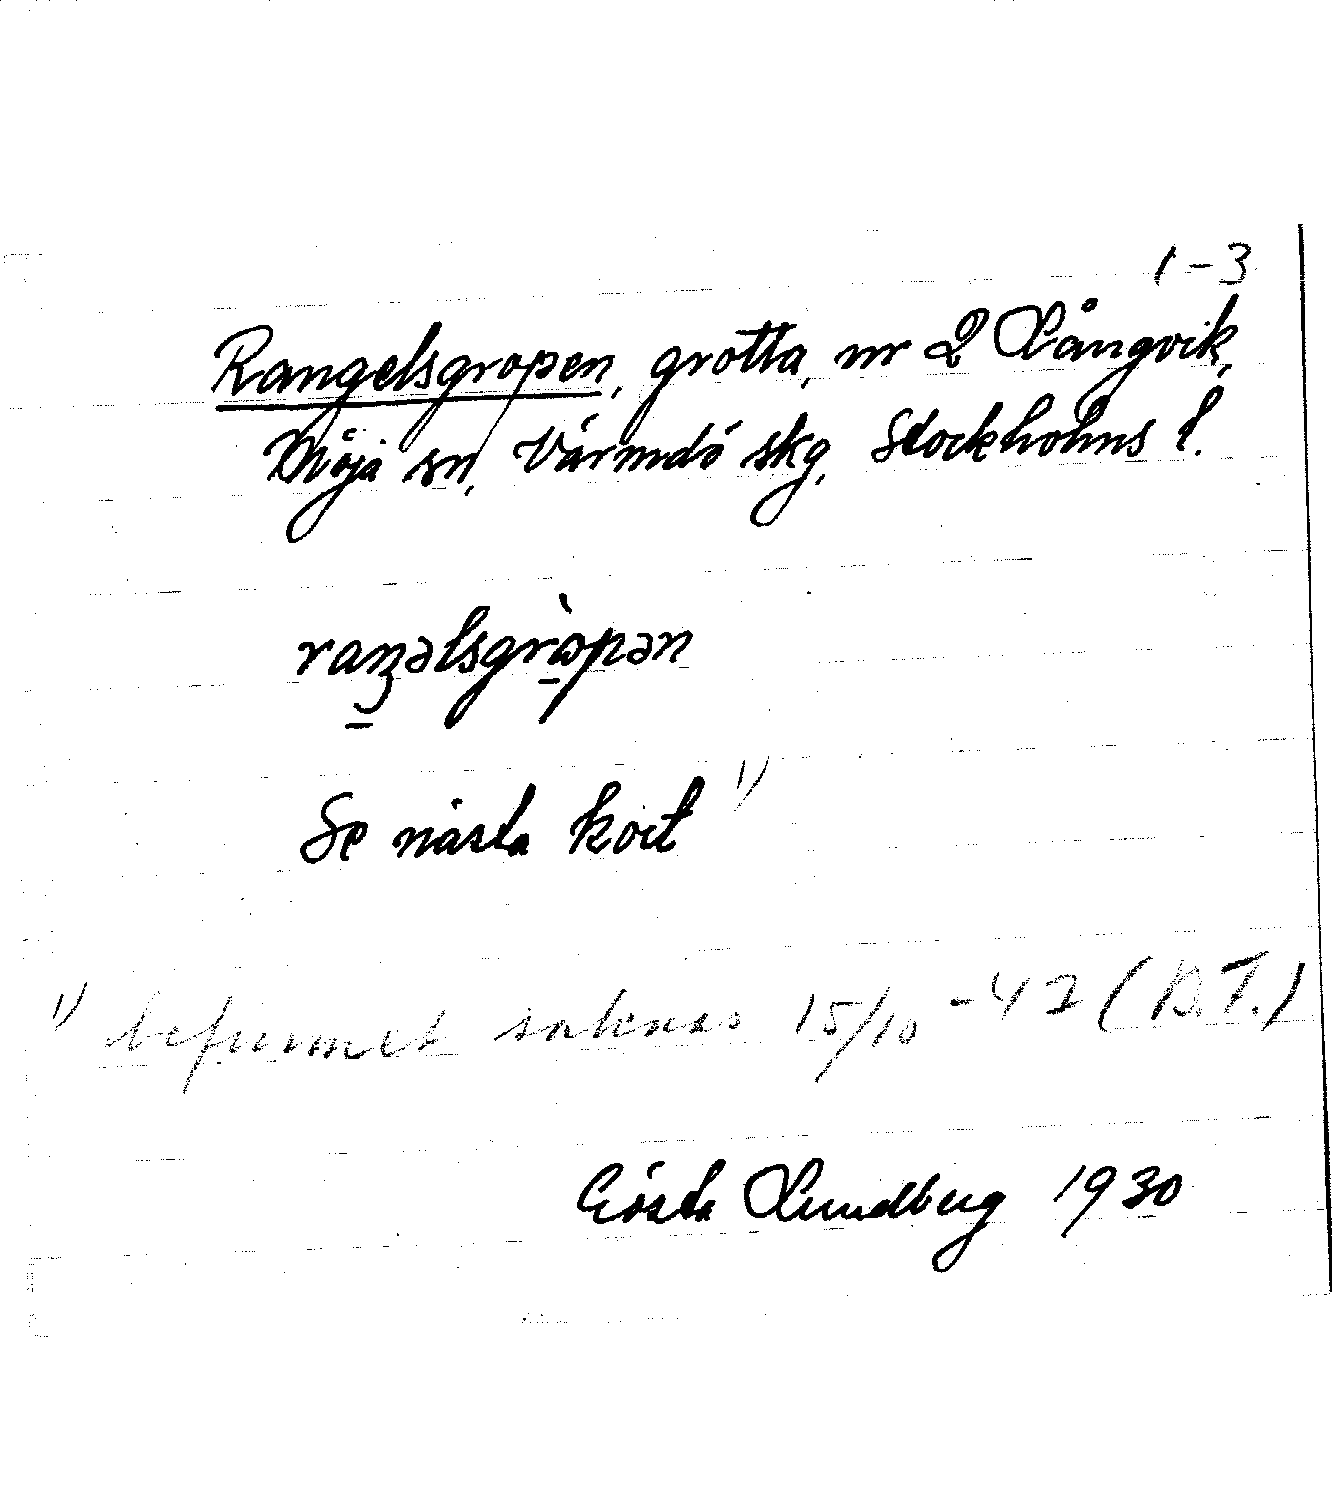 1-3
Rangelsgropen, grotta, nr 2 Långvik,
Möja sn, Värmdö skg, Stockholms l.
raŋəlsgròpən
Se nästa kort 1)
1) befunnet saknas 15/10 -47 (D.T.)
Gösta Lundberg 1930